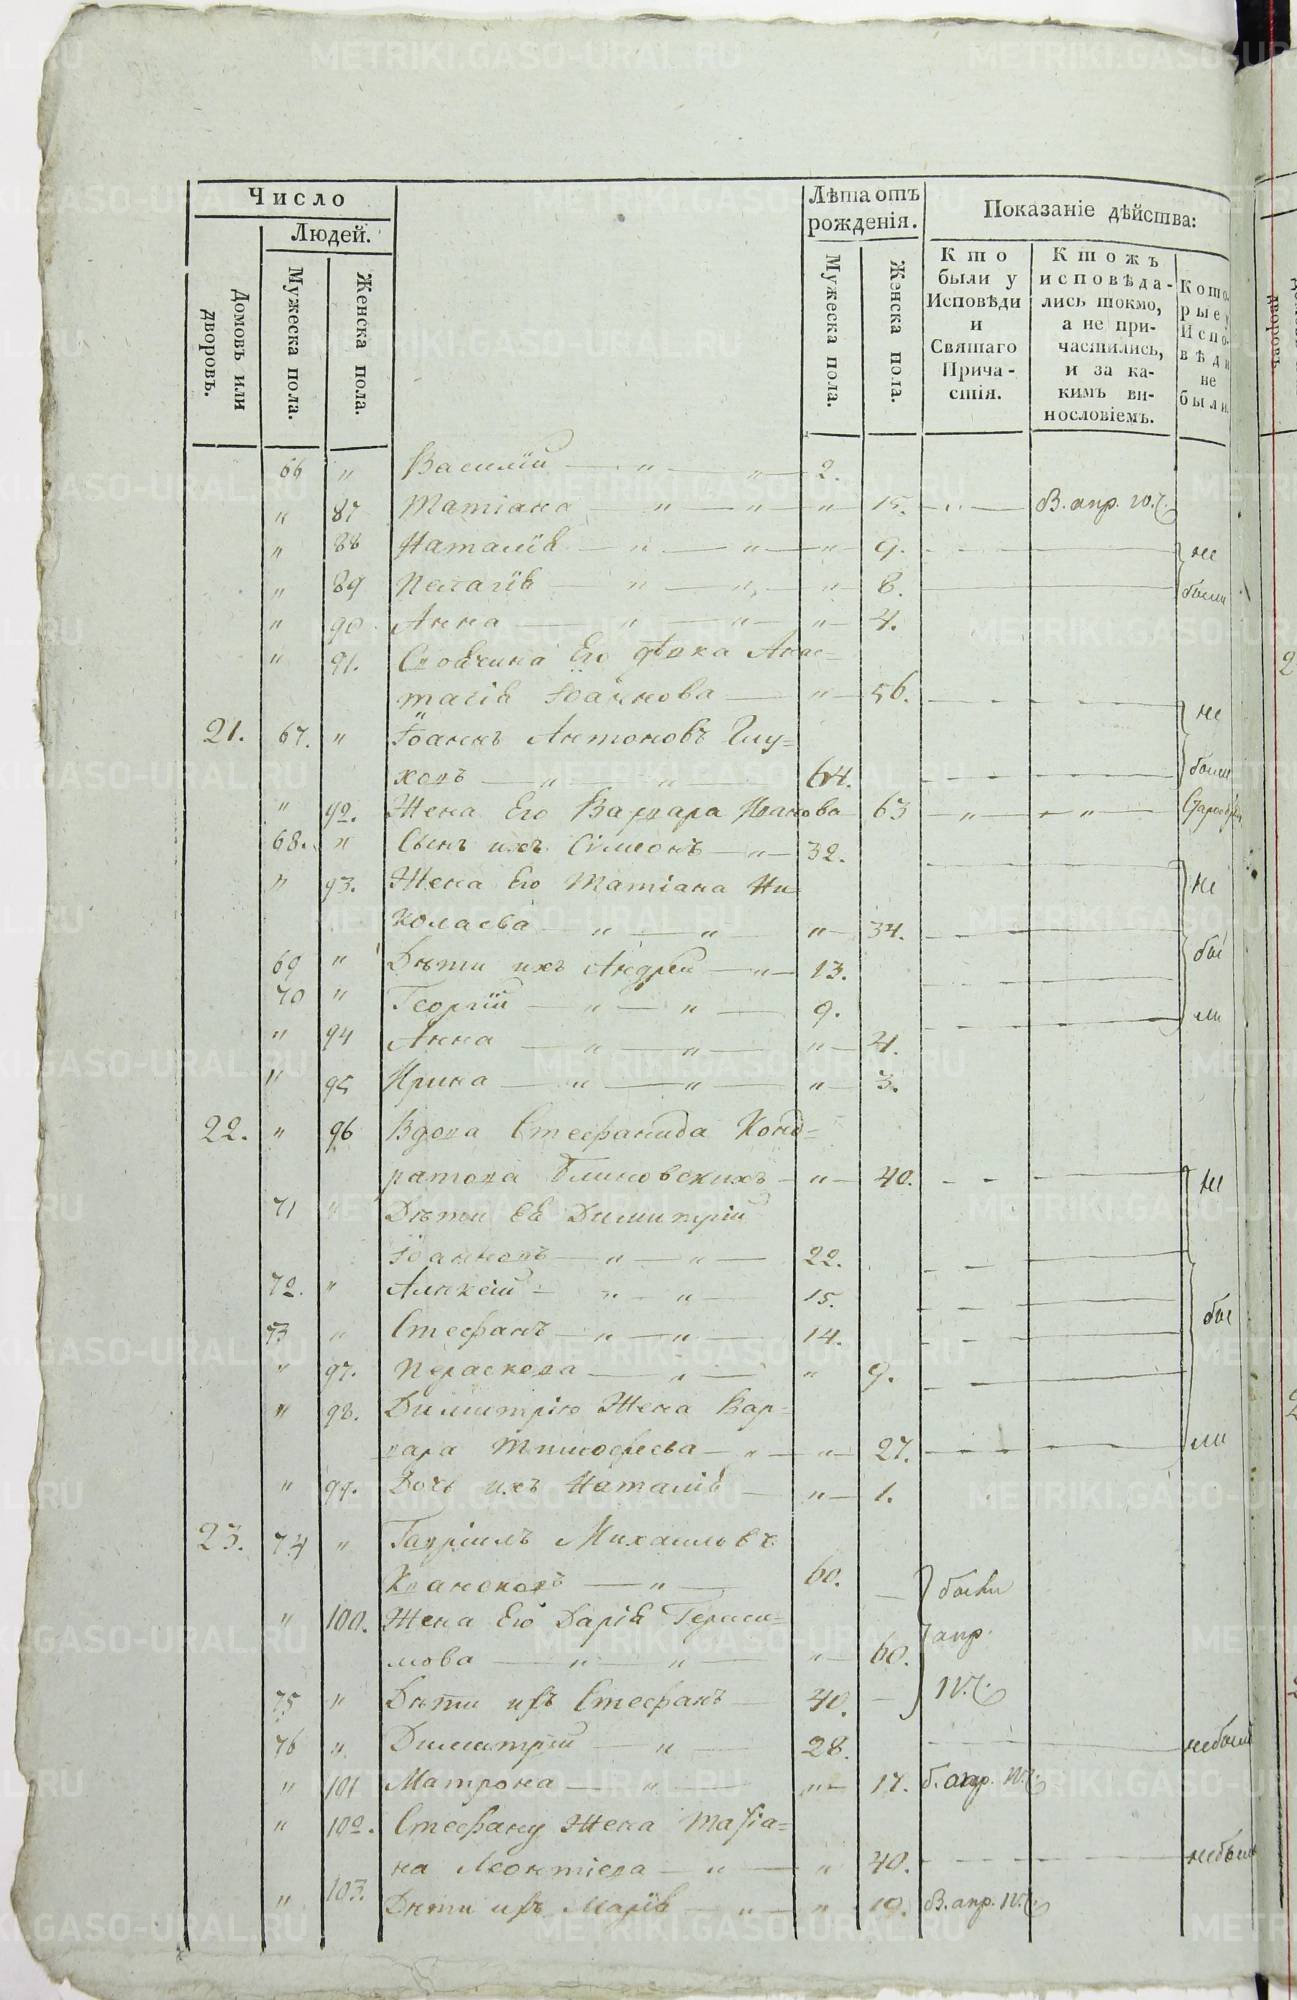 Число
Людей.
Домовъ или дворовъ.
Мужеска пола.
Женска пола.
Лѣта отъ рожденія.
Мужеска пола.
Женска пола.
Показаніе дѣйства:
Кто были у Исповѣди и Святаго Причастія.
Ктожъ исповѣдались токмо, а не причастились, и за какимъ винословіемъ.
Которые у Исповѣди не были
66 " Василій — " — " — 2.
" 87 Татіана — " — " — " — 15. В. апр.
" 88 Наталія — " — " — " — 9. не
" 89 Пелагія — " — " — " — 8. были
" 90 Анна — " — " — " — 4.
" 91. Его Анас=
тасія Іоаннова — " — 56.
21. 67. " Іоаннъ Антоновъ Глу= не
ховъ — " — " — 64. были
" 92. Жена Его Варвара Иванова 63 — " — " —
68. " Сынъ ихъ Сѵмеонъ — " — 32.
" 93. Жена Его Татіана Ни не
колаева — " — " — " — 34.
69 " Дѣти ихъ Андрей — " — 13. бы
70 " Георгій — " — " — 9. ли
" 94 Анна — " — " — " — 4.
" 95 Ирина — " — " — " — 3.
22. " 96 Вдова Стефанида Конд=
ратова Блиновскихъ — " — 40. не
71 " Дѣти Ея Димитрій
Іоанновъ — " — " — 22.
72. " Алексій — " — " — 15. бы
73 " Стефанъ — " — " — 14.
" 97. Параскева — " — " 9.
" 98. Димитрію Жена Вар=
вара Тимофеева — " — " — 27. ли
" 99. Дочь ихъ Наталія — " — 1.
23. 74 " Гавріилъ Михаиловъ
— " — 60. были
" 100. Жена Его Дарія Гераси= апр.
мова — " — " — " — 60.
75 " Дѣти ихъ Стефанъ — 40.
76 " Димитрій — " — 28. небыли
" 101 Матрона — " — " — 17. апр.
" 102. Стефану Жена Татіа=
на Леонтіева — " — " — 40. небыли
" 103. Дѣти ихъ Марія — " — " — 10. В. апр.
METRIKI.GASO-URAL.RU